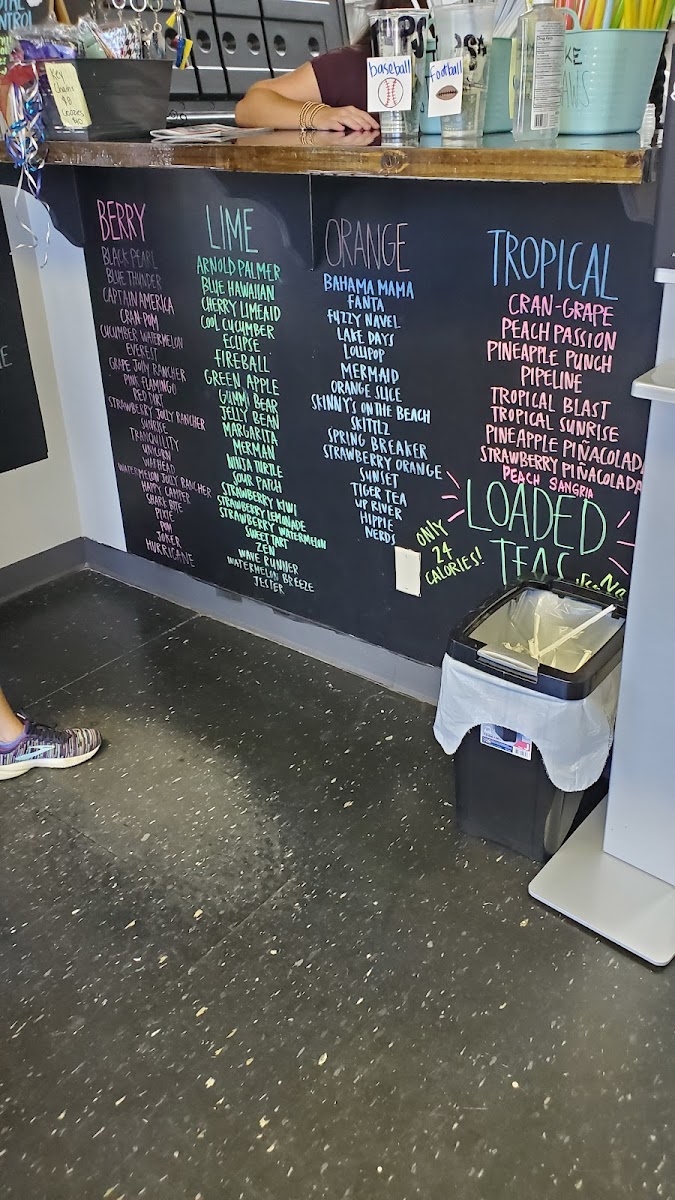 CONTROL
Key
Chains
$8
baseball
football
BERRY
BLACK PEARL
BLUE THUNDER
CAPTAIN AMERICA
CRAN-POM
CUCUMBER WATERMELON
EVEREST
GRAPE JOLLY RANCHER
PINK FLAMINGO
RED DIRT
STRAWBERRY JOLLY RANCHER
SUNRISE
TRANQUILITY
UNICORN
WARHEAD
WATERMELON JOLLY RANCHER
HAPPY CAMPER
SHARK BITE
PIXIE
JOKER
HURRICANE
LIME
ARNOLD PALMER
BLUE HAWAIIAN
CHERRY LIMEAID
COOL CUCUMBER
ECLIPSE
FIREBALL
GREEN APPLE
GUMMI BEAR
JELLY BEAN
MARGARITA
MERMAN
NINJA TURTLE
SOUR PATCH
STRAWBERRY KIWI
STRAWBERRY LEMONADE
STRAWBERRY WATERMELON
SWEET TART
ZEN
WAVE RUNNER
WATERMELON BREEZE
JESTER
ORANGE
BAHAMA MAMA
FANTA
FUZZY NAVEL
LAKE DAYS
LOLLIPOP
MERMAID
ORANGE SLICE
SKINNY'S ON THE BEACH
SKITTLZ
SPRING BREAKER
STRAWBERRY ORANGE
SUNSET
TIGER TEA
UP RIVER
HIPPIE
NERDS
TROPICAL
CRAN-GRAPE
PEACH PASSION
PINEAPPLE PUNCH
PIPELINE
TROPICAL BLAST
TROPICAL SUNRISE
PINEAPPLE PIÑACOLADA
STRAWBERRY PIÑACOLADA
PEACH SANGRIA
LOADED
TEAS
ONLY
24
CALORIES!